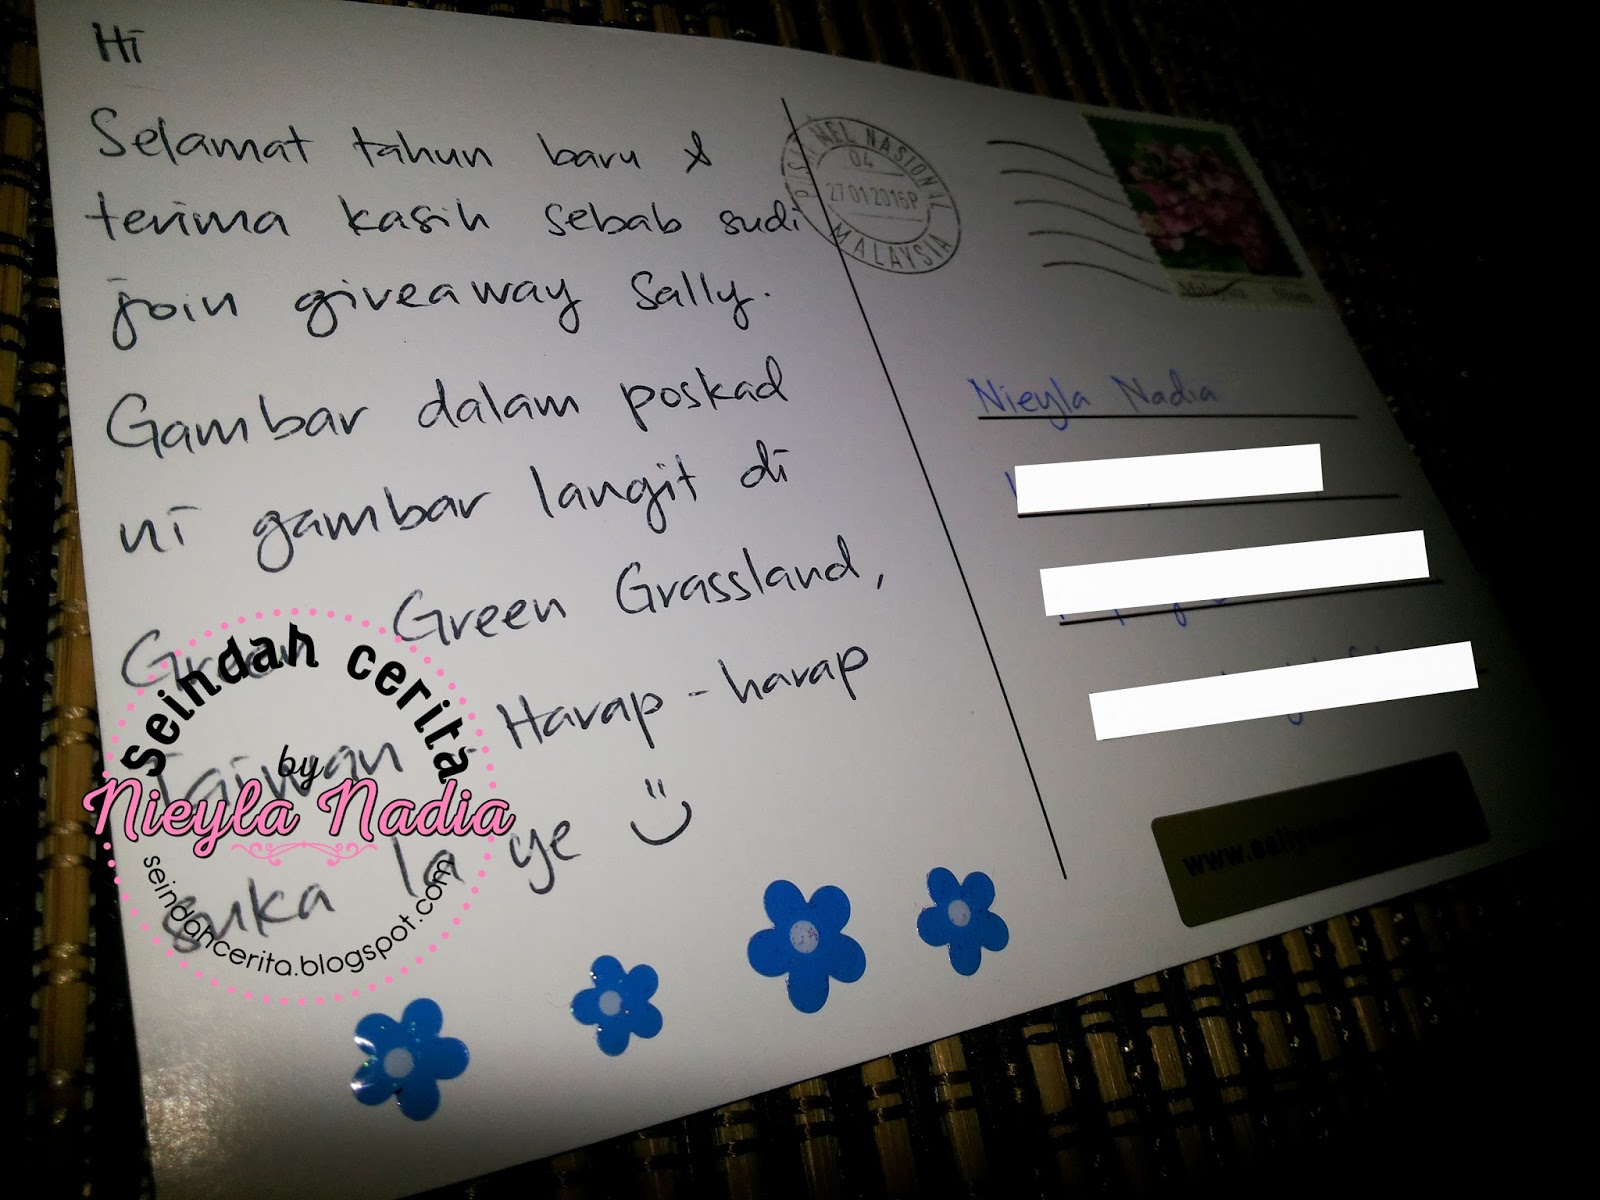 Hi
Selamat tahun baru &
terima kasih sebab sudi
join giveaway Sally.
Gambar dalam poskad
ni gambar langit di
Green Green Grassland,
Taiwan. Harap-harap
suka la ye
PUSAT MEL NASIONAL
04
27012016P
MALAYSIA
Malaysia
Nieyla Nadia
seindah cerita
by
Nieyla Nadia
seindahcerita.blogspot.com